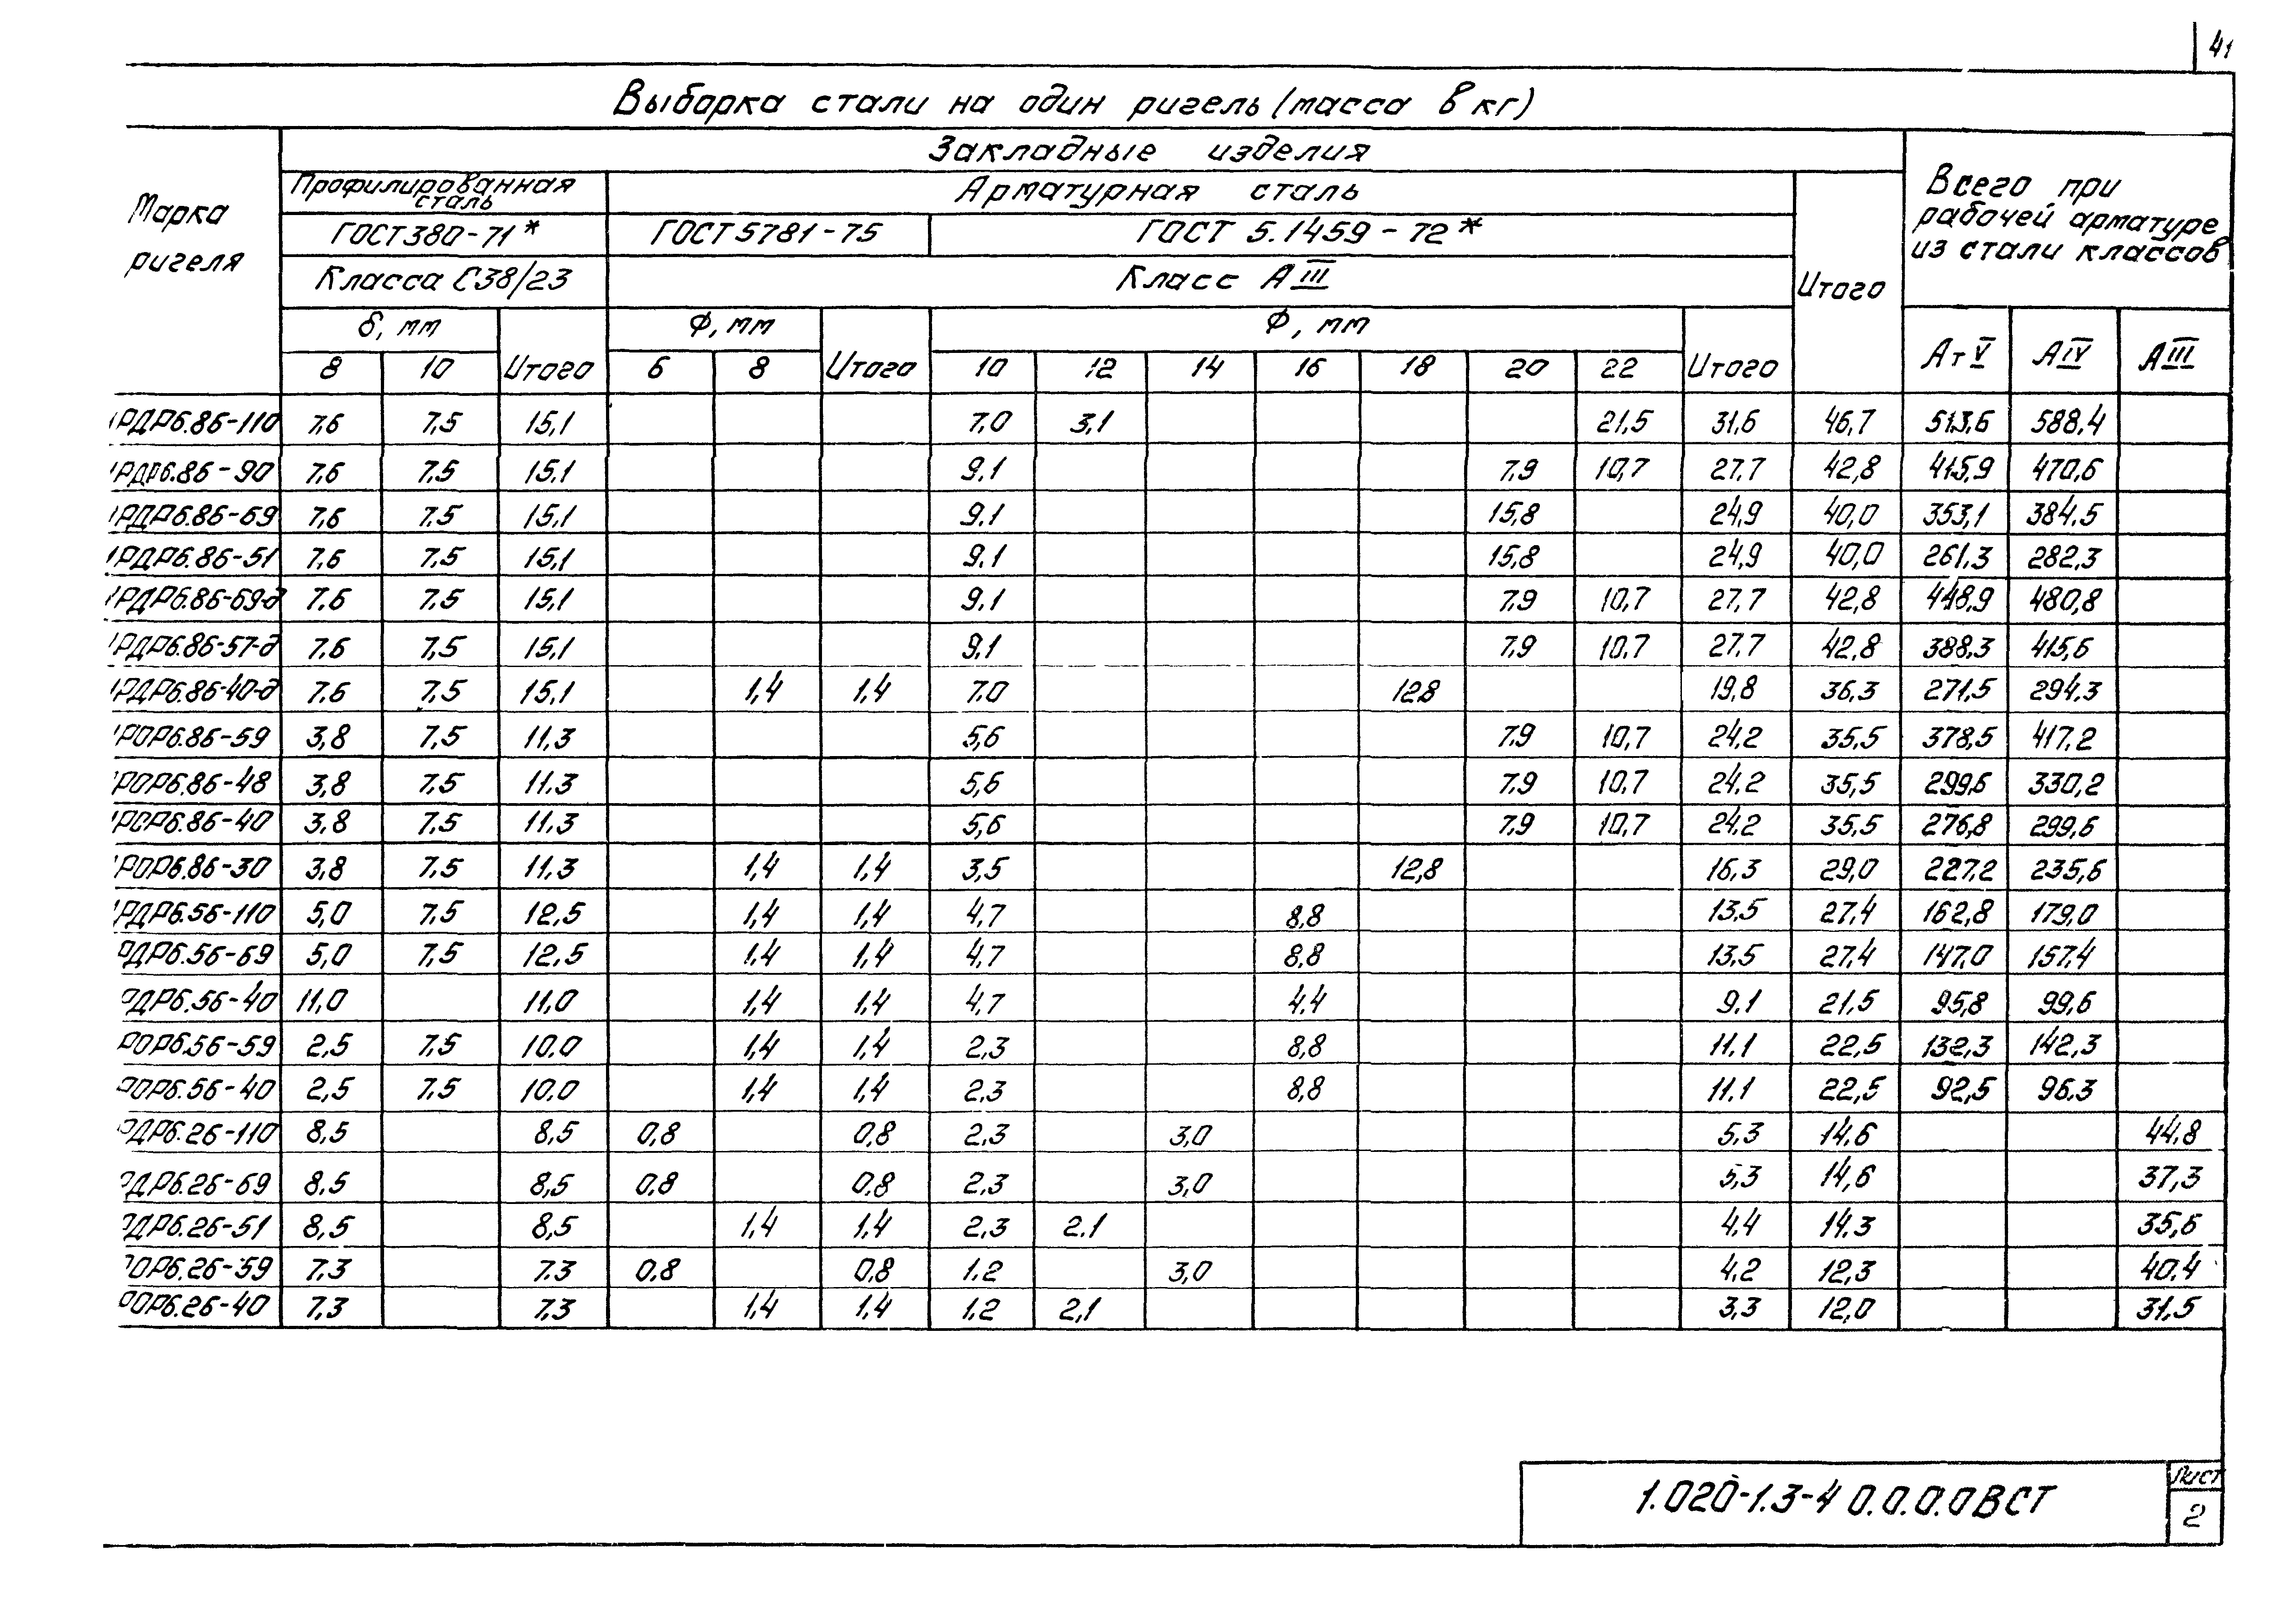 41
Выборка стали на один ригель (масса в кг)
Марка ригеля
Закладные изделия
Всего при рабочей арматуре из стали классов
Профилированная сталь
Арматурная сталь
Итого
ГОСТ 380-71*
ГОСТ 5781-75
ГОСТ 5.1459-72*
Класса С38/23
Класс АIII
δ, мм
Итого
Ф, мм
Итого
Ф, мм
Итого
АтV АIV АIII
8 10 6 8 10 12 14 16 18 20 22
РДР6.86-110 7,6 7,5 15,1 7,0 3,1 21,5 31,6 46,7 513,6 588,4
РДР6.86-90 7,6 7,5 15,1 9,1 7,9 10,7 27,7 42,8 415,9 470,6
РДР6.86-69 7,6 7,5 15,1 9,1 15,8 24,9 40,0 353,1 384,5
РДР6.86-51 7,6 7,5 15,1 9,1 15,8 24,9 40,0 261,3 282,3
РДР6.86-69-д 7,6 7,5 15,1 9,1 7,9 10,7 27,7 42,8 448,9 480,8
РДР6.86-57-д 7,6 7,5 15,1 9,1 7,9 10,7 27,7 42,8 388,3 415,6
РДР6.86-40-д 7,6 7,5 15,1 1,4 1,4 7,0 12,8 19,8 36,3 271,5 294,3
РОР6.86-59 3,8 7,5 11,3 5,6 7,9 10,7 24,2 35,5 378,5 417,2
РОР6.86-48 3,8 7,5 11,3 5,6 7,9 10,7 24,2 35,5 299,6 330,2
РОР6.86-40 3,8 7,5 11,3 5,6 7,9 10,7 24,2 35,5 276,8 299,6
РОР6.86-30 3,8 7,5 11,3 1,4 1,4 3,5 12,8 16,3 29,0 227,2 235,6
РДР6.56-110 5,0 7,5 12,5 1,4 1,4 4,7 8,8 13,5 27,4 162,8 179,0
РДР6.56-69 5,0 7,5 12,5 1,4 1,4 4,7 8,8 13,5 27,4 147,0 157,4
РДР6.56-40 11,0 11,0 1,4 1,4 4,7 4,4 9,1 21,5 95,8 99,6
РОР6.56-59 2,5 7,5 10,0 1,4 1,4 2,3 8,8 11,1 22,5 132,3 142,3
РОР6.56-40 2,5 7,5 10,0 1,4 1,4 2,3 8,8 11,1 22,5 92,5 96,3
РДР6.26-110 8,5 8,5 0,8 0,8 2,3 3,0 5,3 14,6 44,8
РДР6.26-69 8,5 8,5 0,8 0,8 2,3 3,0 5,3 14,6 37,3
РДР6.26-51 8,5 8,5 1,4 1,4 2,3 2,1 4,4 14,3 35,6
РОР6.26-59 7,3 7,3 0,8 0,8 1,2 3,0 4,2 12,3 40,4
РОР6.26-40 7,3 7,3 1,4 1,4 1,2 2,1 3,3 12,0 31,5
1.020-1.3-4 0.0.0.0ВСТ
Лист
2